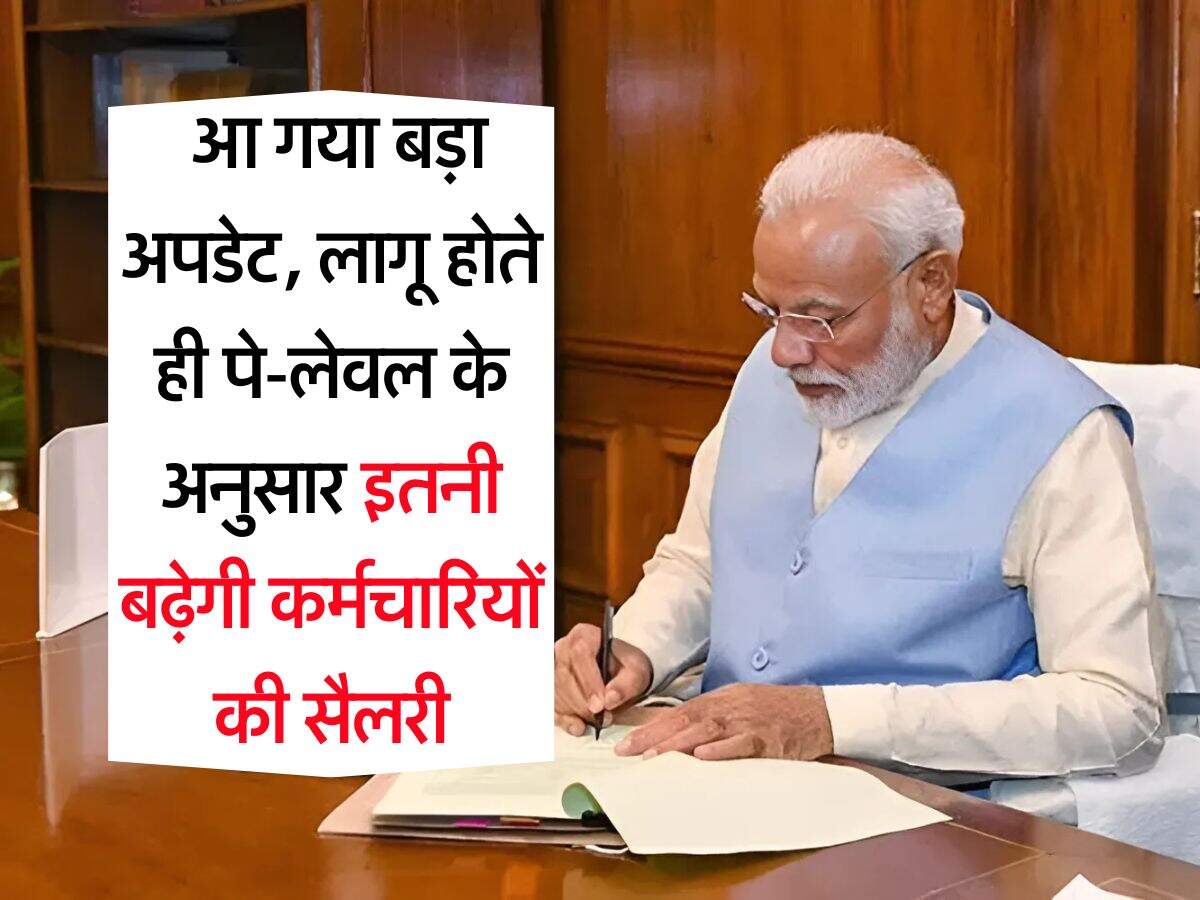 आ गया बड़ा
अपडेट, लागू होते
ही पे-लेवल के
अनुसार इतनी
बढ़ेगी कर्मचारियों
की सैलरी